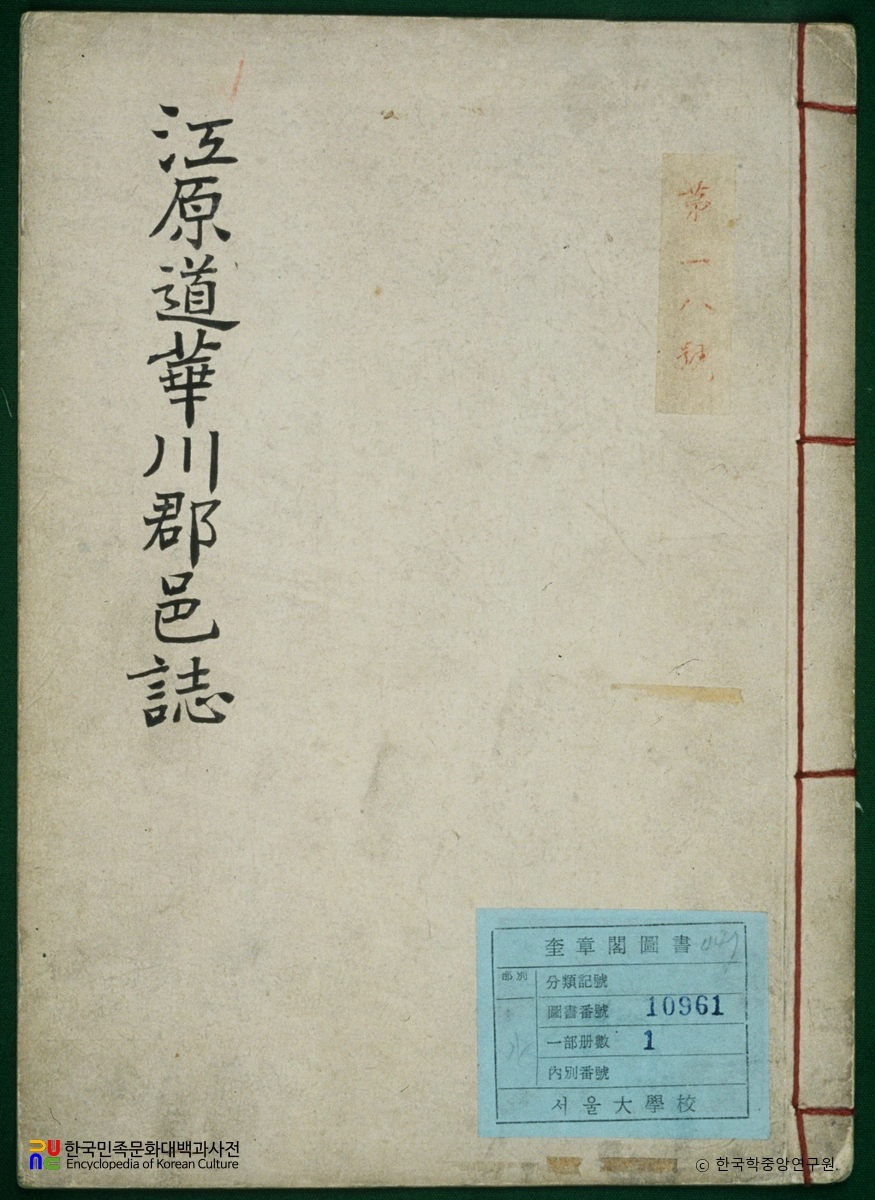 江原道華川郡邑誌
第一八號
奎章閣圖書
部別
分類記號
圖書番號 10961
一部册數 1
內別番號
서울大學校
한국민족문화대백과사전
Encyclopedia of Korean Culture
© 한국학중앙연구원